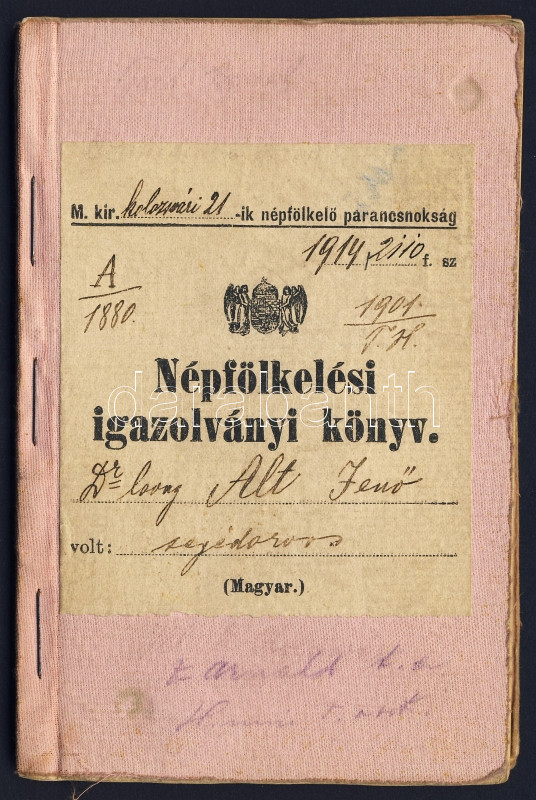 M. kir. kolozsvári 21 -ik népfölkelő parancsnokság
1914, 2110 f. sz
A
1880.
1901.
T. H.
Népfölkelési
igazolványi könyv.
darabanth
Dr lovag Alt Jenő
volt: segédorvos
(Magyar.)